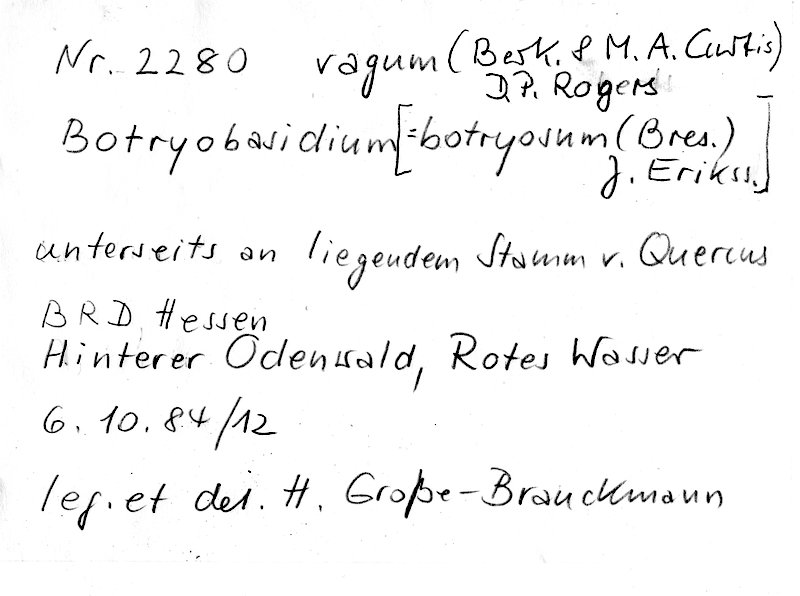 Nr. 2280 vagum (Berk. & M. A. Curtis)
D.P. Rogers
Botryobasidium [=botryosum (Bres.)
J. Erikss.]
unterseits an liegendem Stamm v. Quercus
BRD, Hessen
Hinterer Odenwald, Rotes Wasser
6. 10. 84/12
leg. et det. H. Große-Brauckmann